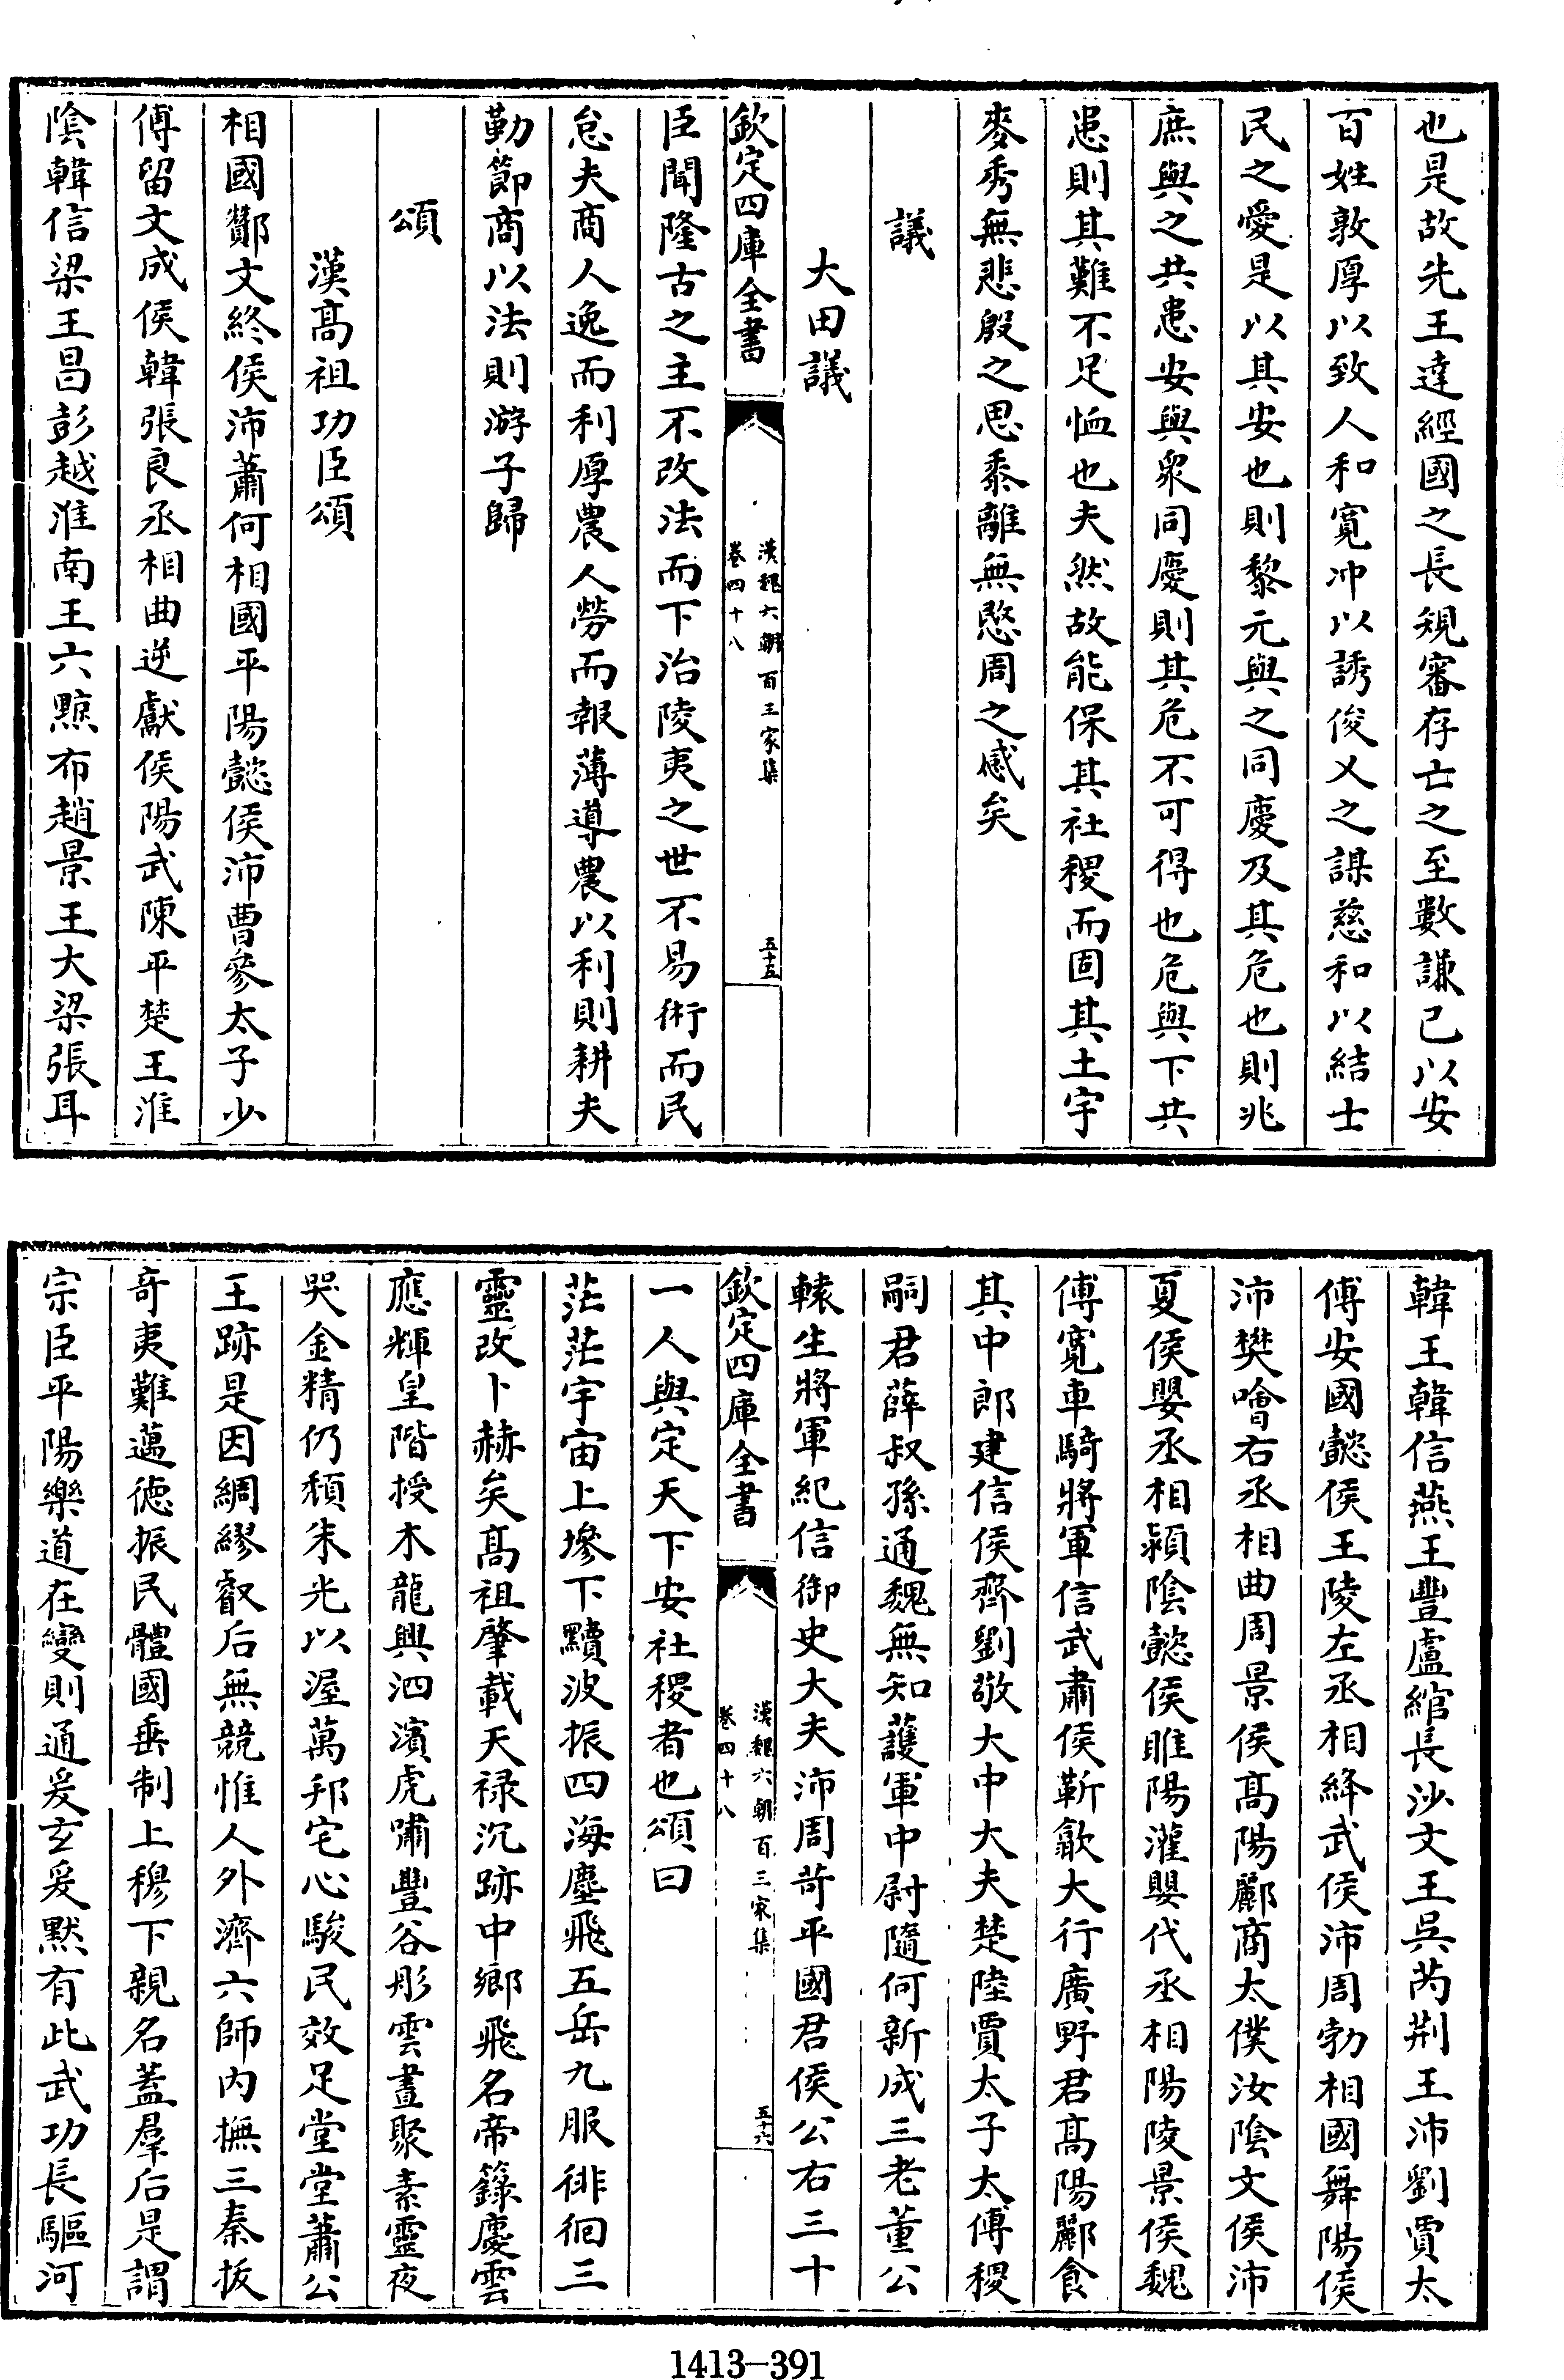 也是故先王達經國之長規審存亡之至數謙已以安
百姓敦厚以致人和寛沖以誘俊乂之謀慈和以結士
民之愛是以其安也則黎元與之同慶及其危也則兆
庶與之共患安與衆同慶則其危不可得也危與下共
患則其難不足恤也夫然故能保其社稷而固其土宇
麥秀無悲殷之思黍離無愍周之感矣
議
大田議
欽定四庫全書
漢魏六朝百三家集
卷四十八
五十五
臣聞隆古之主不改法而下治陵夷之世不易術而民
怠夫商人逸而利厚農人勞而報薄導農以利則耕夫
勤節商以法則游子歸
頌
漢髙祖功臣頌
相國酇文終侯沛蕭何相國平陽懿侯沛曹參太子少
傅留文成侯韓張良丞相曲逆獻侯陽武陳平楚王淮
陰韓信梁王昌彭越淮南王六黥布趙景王大梁張耳
韓王韓信燕王豐盧綰長沙文王吳芮荆王沛劉賈太
傅安國懿侯王陵左丞相絳武侯沛周勃相國舞陽侯
沛樊噲右丞相曲周景侯髙陽酈商太僕汝陰文侯沛
夏侯嬰丞相潁陰懿侯睢陽灌嬰代丞相陽陵景侯魏
傅寛車騎將軍信武肅侯靳歙大行廣野君髙陽酈食
其中郎建信侯齊劉敬大中大夫楚陸賈太子太傅稷
嗣君薛叔孫通魏無知護軍中尉隨何新成三老董公
轅生將軍紀信御史大夫沛周苛平國君侯公右三十
欽定四庫全書
漢魏六朝百三家集
卷四十八
五十六
一人與定天下安社稷者也頌曰
茫茫宇宙上墋下黷波振四海塵飛五岳九服徘徊三
靈改卜赫矣髙祖肇載天禄沉跡中鄉飛名帝籙慶雲
應輝皇階授木龍興泗濱虎嘯豐谷彤雲晝聚素靈夜
哭金精仍頽朱光以渥萬邦宅心駿民效足堂堂蕭公
王跡是因綢繆叡后無競惟人外濟六師内撫三秦拔
奇夷難邁徳振民體國垂制上穆下親名蓋羣后是謂
宗臣平陽樂道在變則通爰玄爰黙有此武功長驅河
1413-391